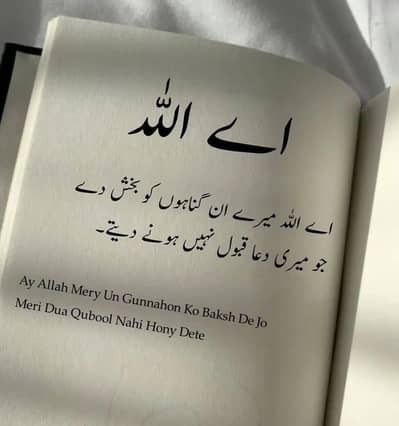 اے اللہ
اے اللہ میرے ان گناہوں کو بخش دے
جو میری دعا قبول نہیں ہونے دیتے۔
Ay Allah Mery Un Gunnahon Ko Baksh De Jo
Meri Dua Qubool Nahi Hony Dete